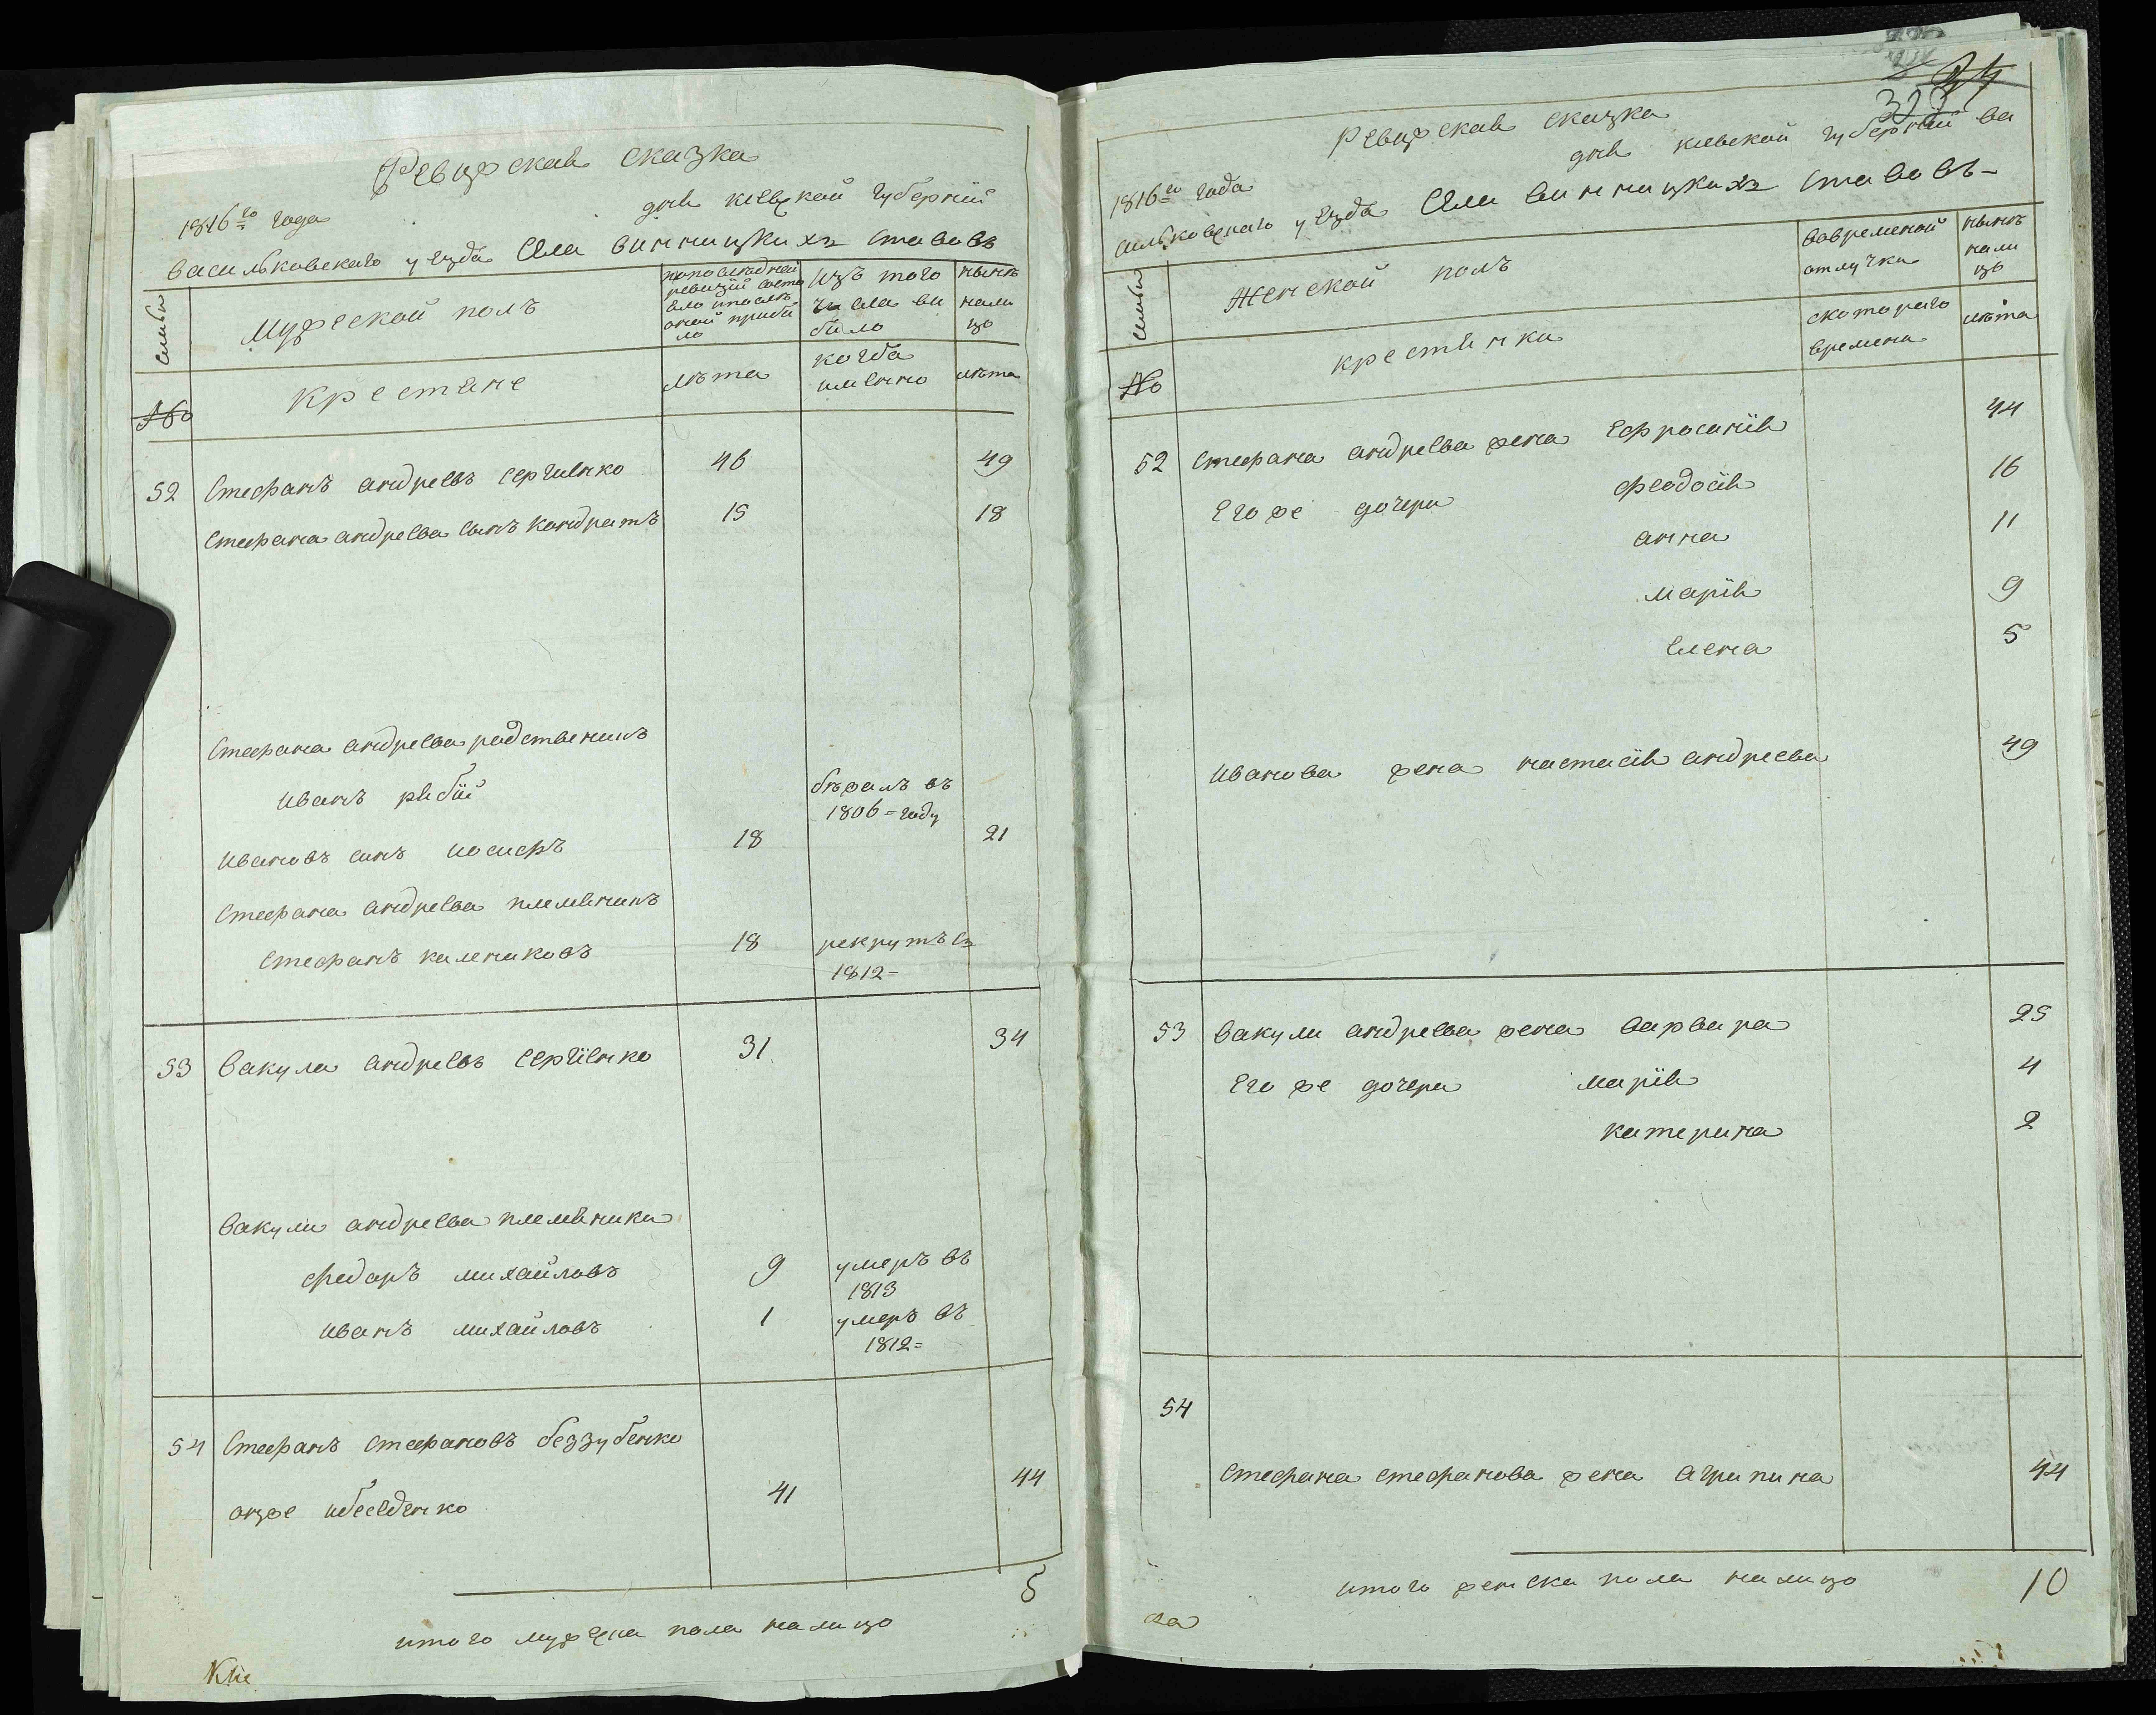 Ревизская сказка
1816го года для киевской губернии
васильковского уезда Села винницкихъ ставовъ
Семьи
Мужеской полъ
попоследней ревизий состо яло ипосле оной прибы ло
изъ того числа вы было
ныне нали цо
№
Крестяне
лета
когда имянно
лета
52 Стефанъ андреевъ сергиенко 46 49
Стефана андреева сынъ кондратъ 15 18
Стефана андреева родственикъ
иванъ рябій бежалъ въ
1806= году
ивановъ синъ иосифъ 18 21
Стефана андреева племяникъ
стефанъ калениковъ 18 рекрутъ съ
1812=
53 Вакула андреевъ сергіенко 31 34
Вакули андреева племяники
федоръ михайловъ 9 умеръ въ
1813
иванъ михайловъ 1 умеръ въ
1812=
54 Стефанъ стефановъ беззубенко
онже 41 44
5
итого мужеска пола налицо
323
Ревизская сказка
1816го года для киевской губерній ва
сильковскаго уезда Села винницкихъ ставовъ-
Семьи
Женской полъ
вовременой отлучки
ныне нали цо
№
крестянки
скотораго времени
лета
52 Стефана андреева жена Ефросинія 44
Его же дочери феодосія 16
анна 11
марія 9
Елена 5
иванова жена настасія андреева 49
53 Вакули андреева жена варвара 25
Его же дочери марія 4
катерина 2
54
Стефана стефанова жена агрипина 44
итого женска пола налицо 10